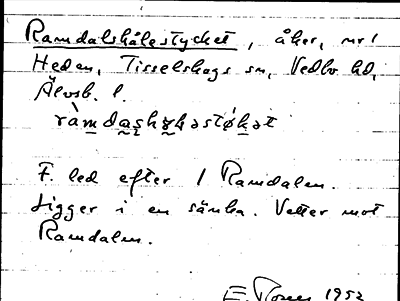 Ramdalshålestycket, åker, nr 1
Heden, Tisselskogs sn, Vedbo hd,
Älvsb. l.
ràmdas̲hɷləstǿkət
F. led efter / Ramdalen.
Ligger i en sänka. Vetter mot
Ramdalen.
E. 1952